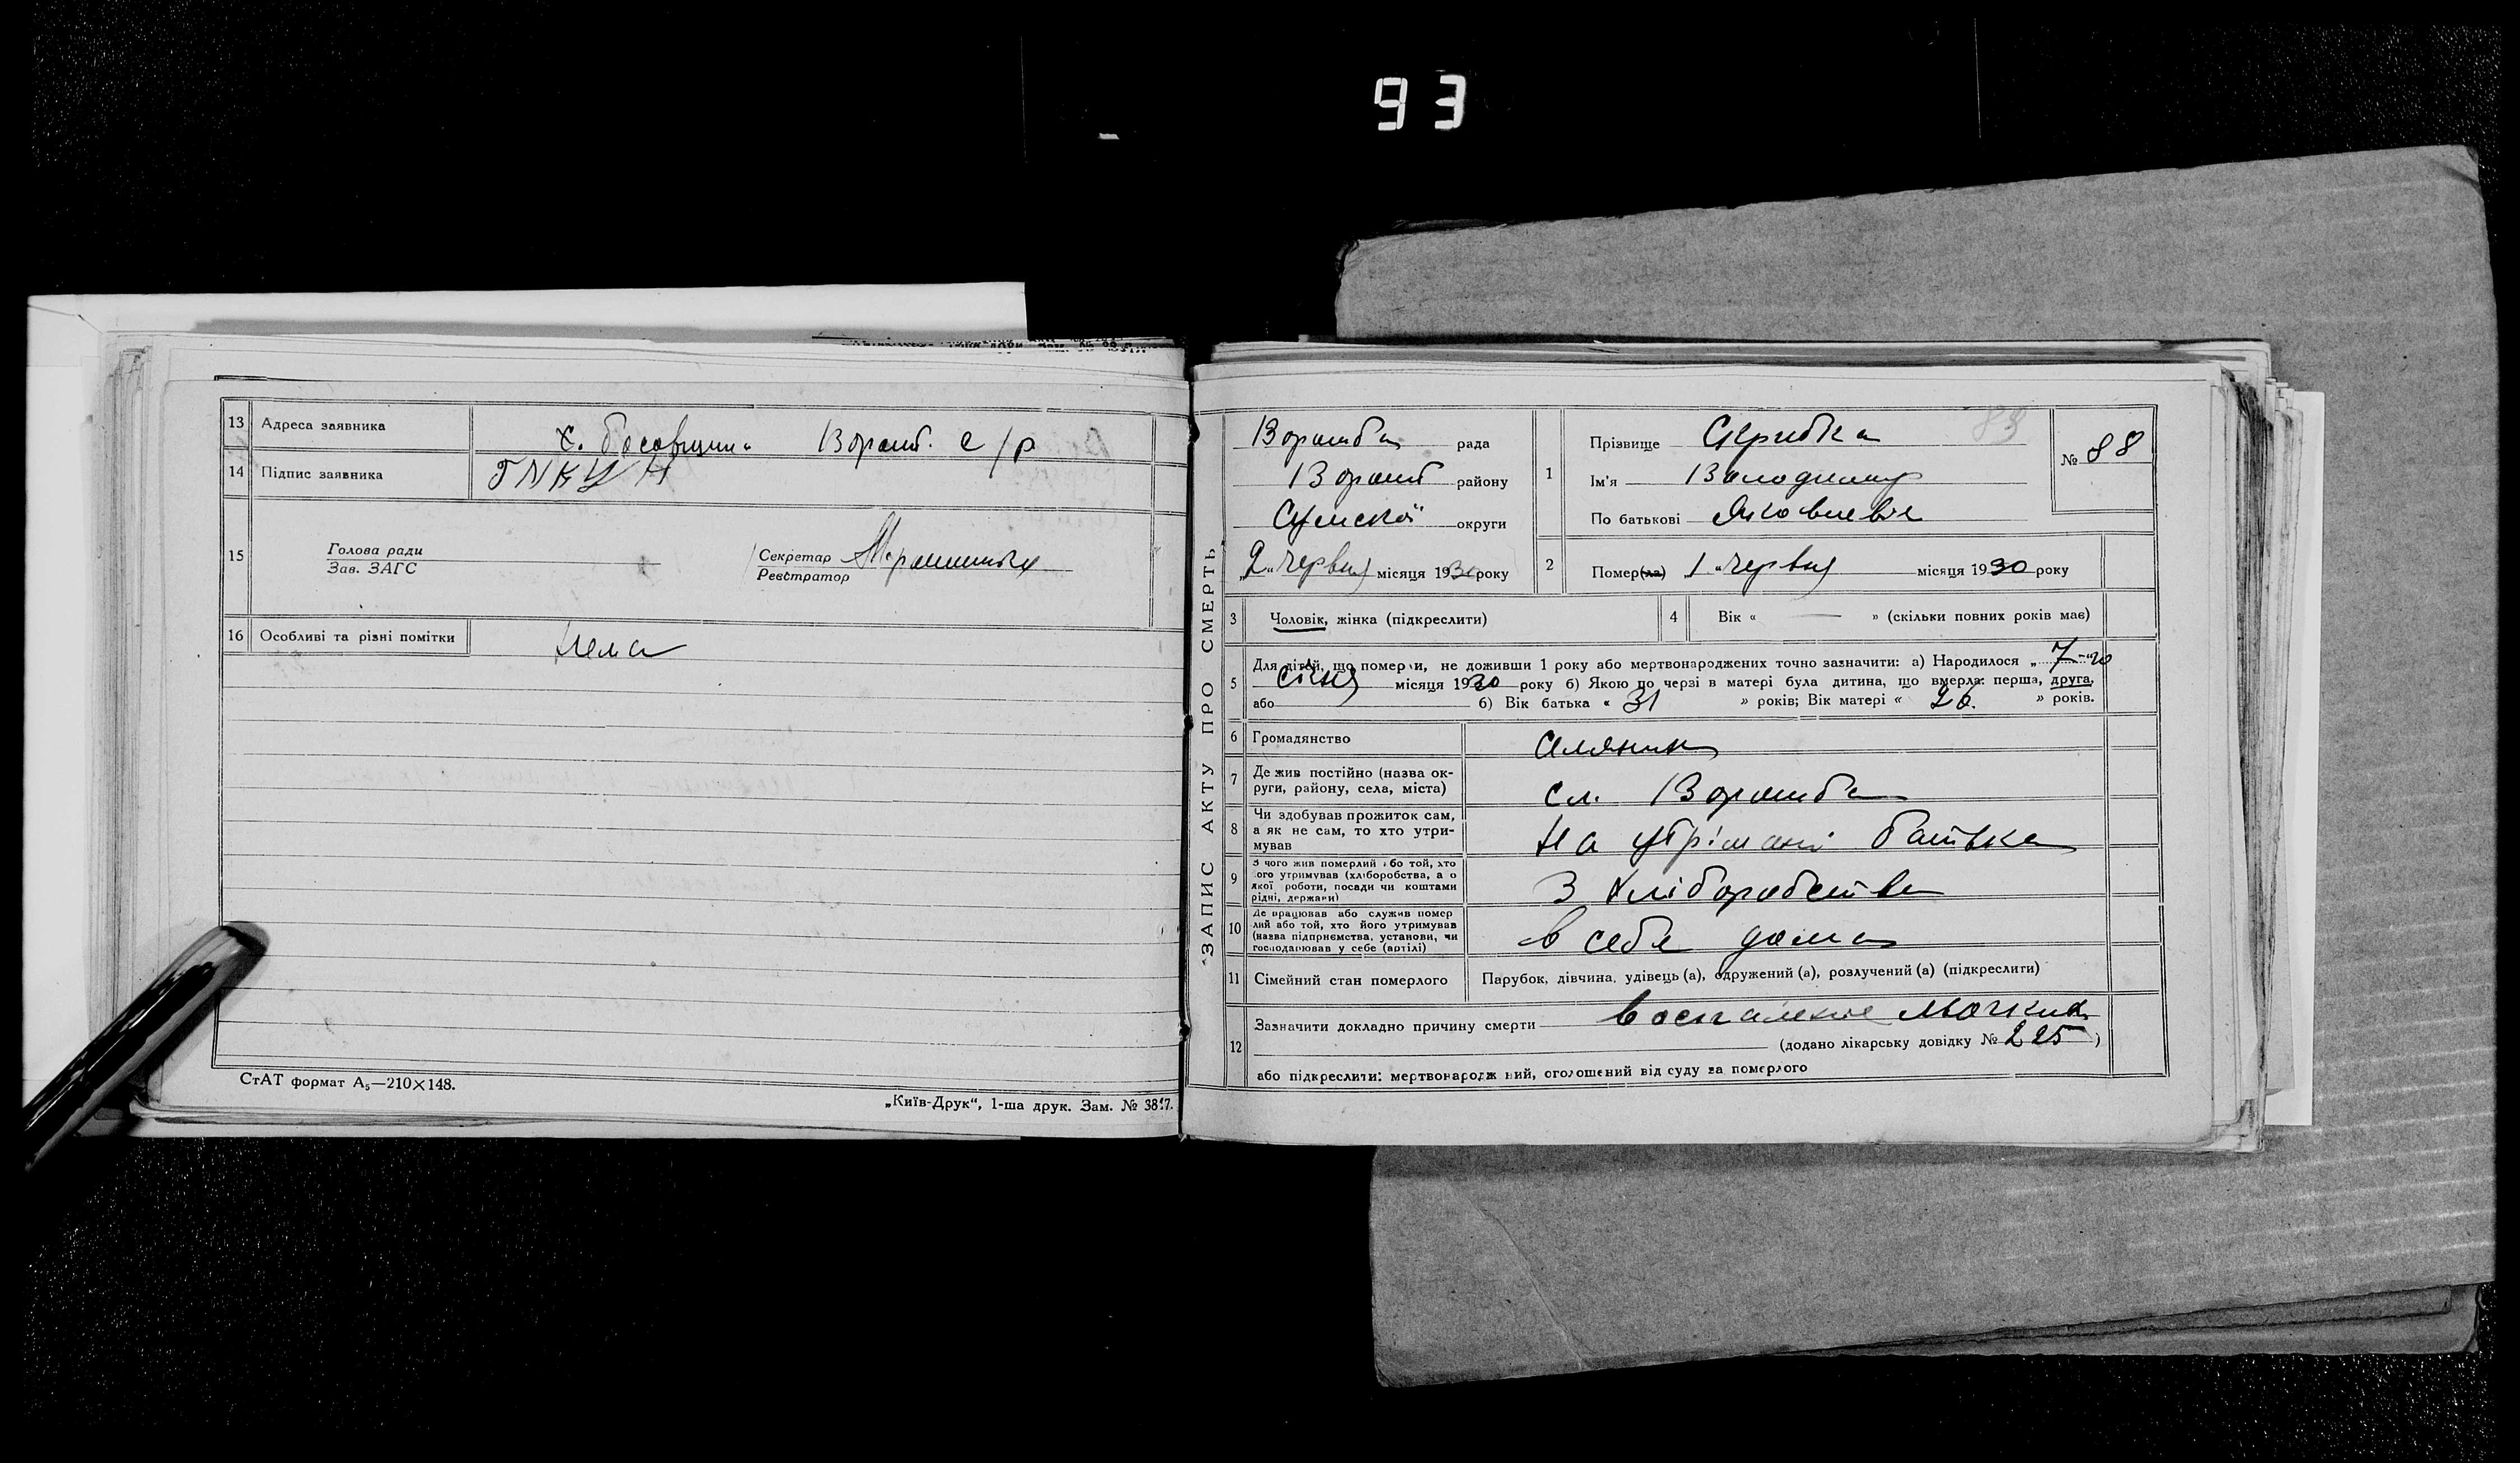 93
13 Адреса заявника х. Босовщина Ворожб. с/р
14 Підпис заявника
15 Голова ради
Зав. ЗАГС
Секретар
Реєстратор
16 Особливі та різні помітки Нема
СтАТ формат А₅—210×148.
„Київ-Друк“, 1-ша друк. Зам. №
ЗАПИС АКТУ ПРО СМЕРТЬ
Ворожба рада
Ворожб району
Сумської округи
„2„ Червня місяця 1930 року
1 Прізвище Скрибка 83
Ім'я Володимир
По батькові Яковлевіч
№ 88
2 Помер(ла) „1„ Червня місяця 1930 року
3 Чоловік, жінка (підкреслити)
4 Вік « — » (скільки повних років має)
5 Для дітей, що померли, не доживши 1 року або мертвонароджених точно зазначити: а) Народилося „ 7-го
Січня місяця 1930 року б) Якою по черзі в матері була дитина, що вмерла: перша, друга,
або б) Вік батька « 31 » років; Вік матері « 26. » років.
6 Громадянство
7 Де жив постійно (назва округи, району, села, міста) сл. Ворожба
8 Чи здобував прожиток сам, а як не сам, то хто утримував На утрімані батька
9 З чого жив померлий або той, хто його утримував (хліборобства, а о якої роботи, посади чи коштами рідні, держави) З хліборобства
10 Де працював або служив помер лий або той, хто його утримував (назва підприємства, установи, чи господарював у себе (артілі) в себе дома
11 Сімейний стан померлого Парубок, дівчина, удівець (а), одружений (а), розлучений (а) (підкреслити)
12 Зазначити докладно причину смерти воспаление
(додано лікарську довідку № 225 )
або підкреслити: мертвонародж ний, оголошений від суду за померлого